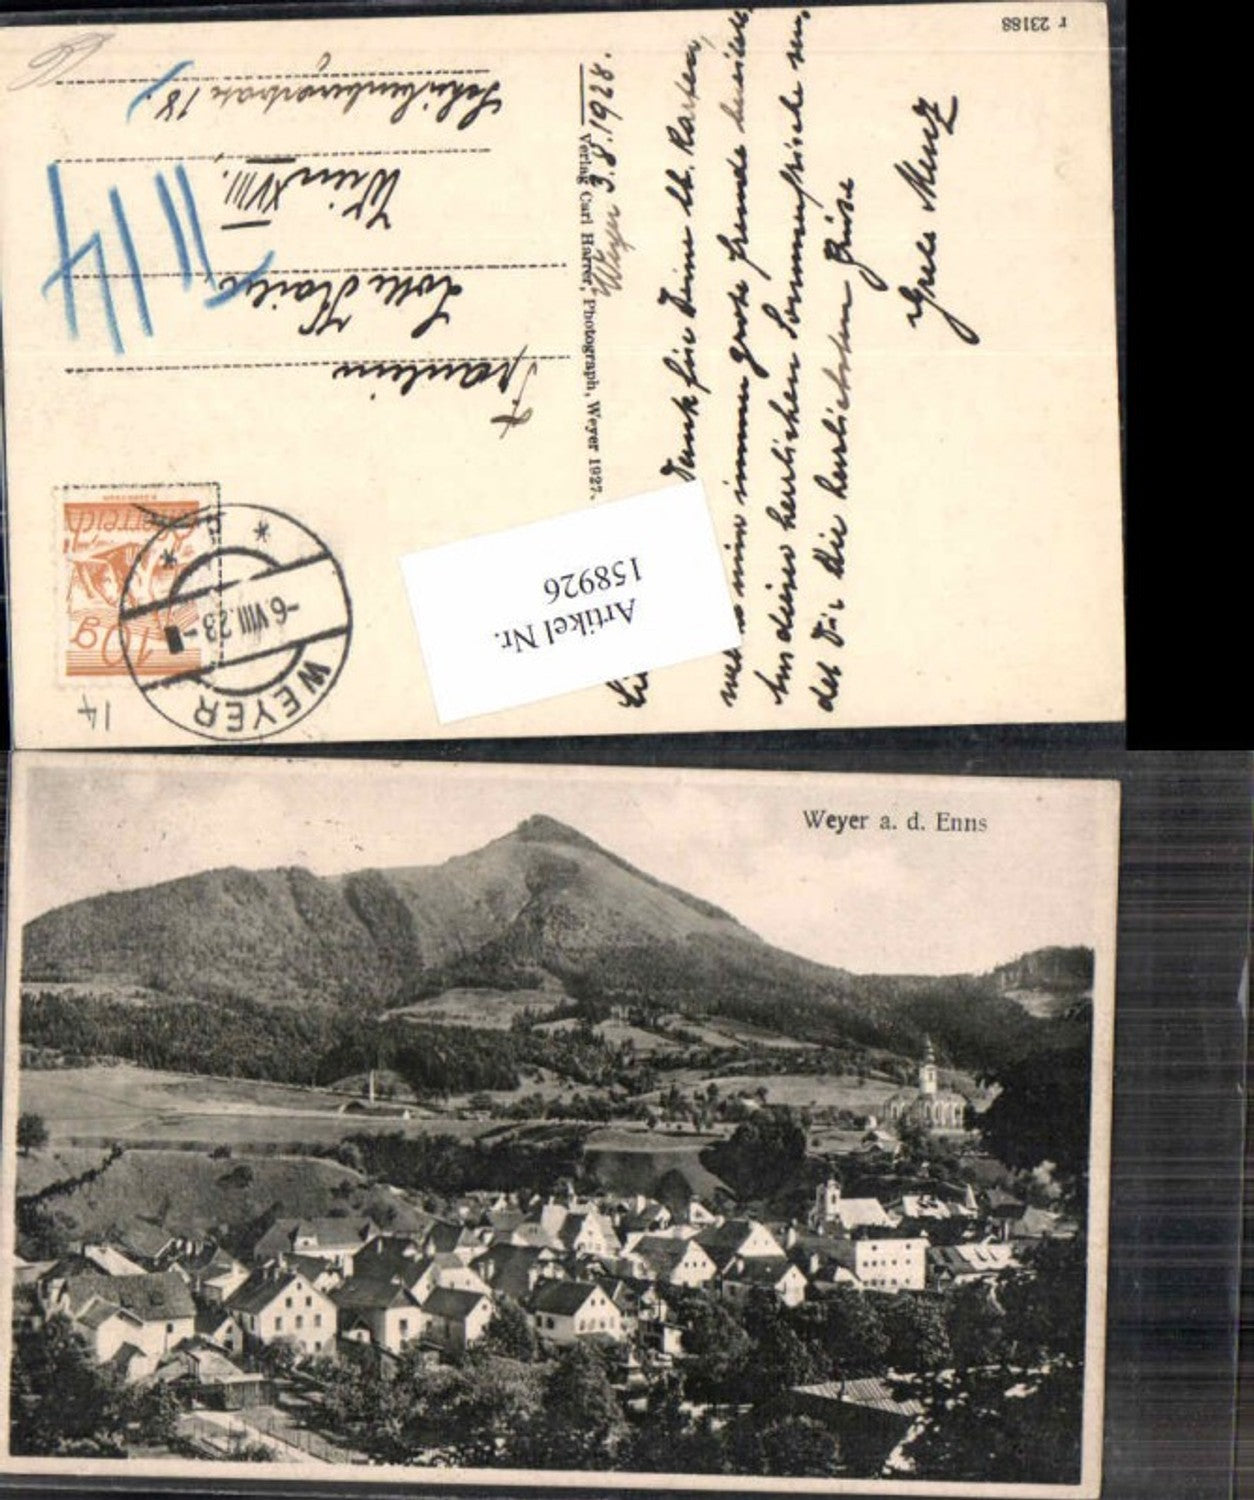 r 23188
Dank für Deine lb. Karten,
mir immer große Freude bereiten
Aus dieser herrlichen Sommerfrische sen,
det Dir die herzlichsten Grüße
Grete Menz
Weyer 3.8.1928.
Verlag Carl Harrer, Photograph, Weyer 1927.
Artikel Nr.
158926
Fräulein
Wien XVIII.,
18.
14
10g
Österreich
WEYER
-6.VIII.28-
Weyer a. d. Enns